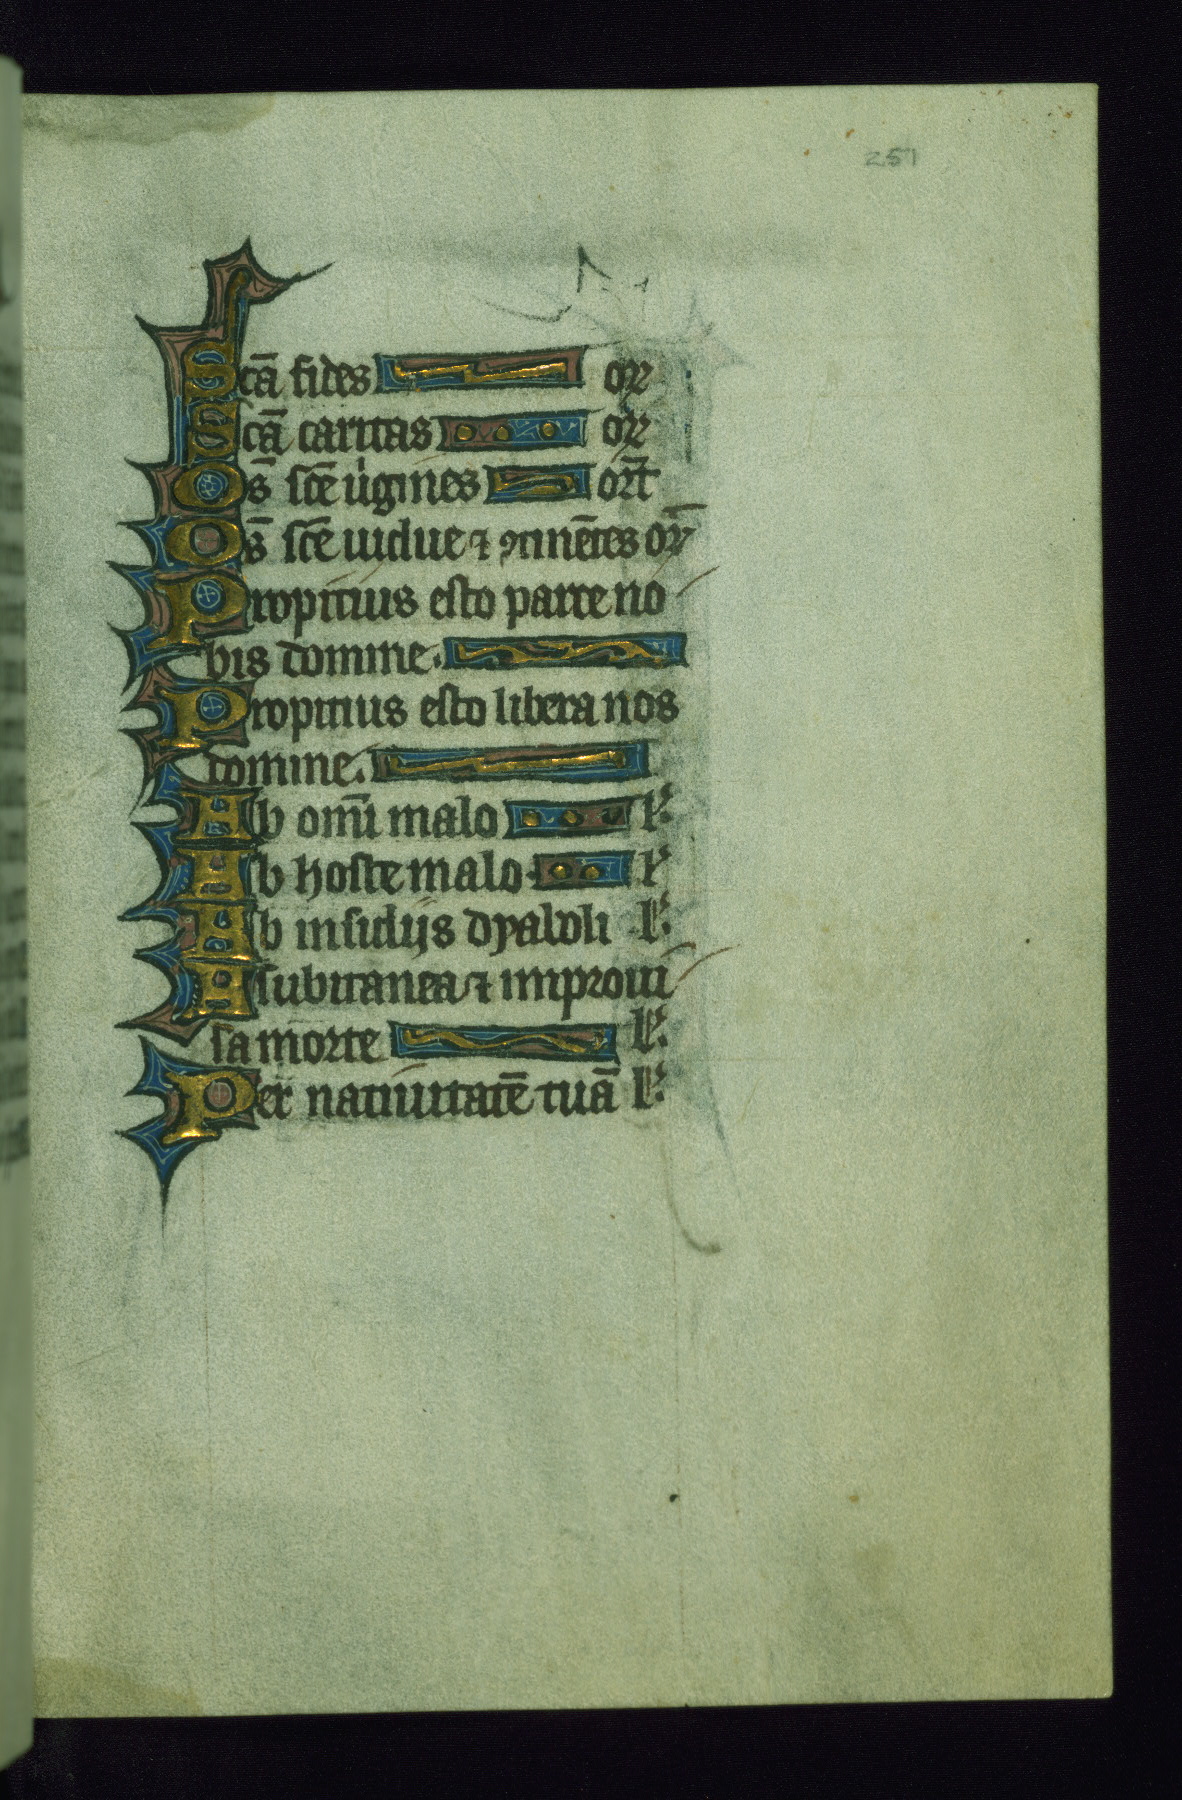 251
Scā fides or
Scā caritas or
Os̄ scē uigines ort̄
Os̄ scē uidue ⁊ ꝯtinētes or̄
Propitius esto parce no
bis domine.
Propitius esto libera nos
domine.
Ab om̄i malo l'.
Ab hoste malo. l'
Ab insidijs dyaboli l'.
A subitanea ⁊ improui
sa morte l'.
Per natiuitatē tuā l'.